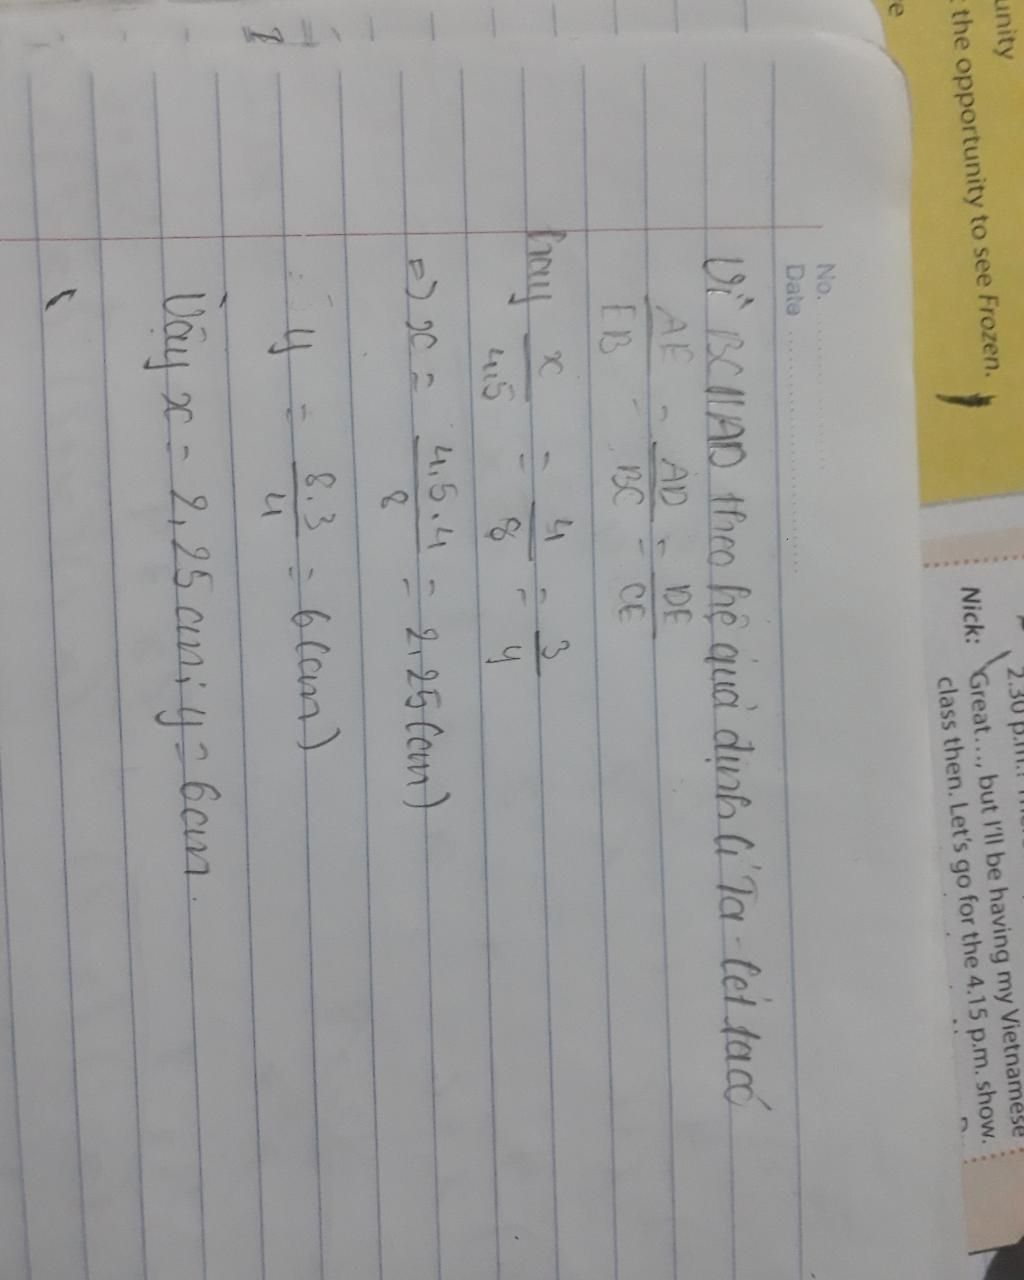 unity
: the opportunity to see Frozen.
e
2.30 p.m.
Nick: Great..., but I'll be having my Vietnamese
class then. Let's go for the 4.15 p.m. show.
No. ....................
Date ....................
Vì BC//AD theo hệ quả định lí Ta-lét ta có
AE/EB = AD/BC = DE/CE
hay x/4,5 = 4/8 = 3/y
=> x = 4,5.4/8 = 2,25(cm)
y = 8.3/4 = 6(cm)
Vậy x = 2,25cm; y = 6cm.